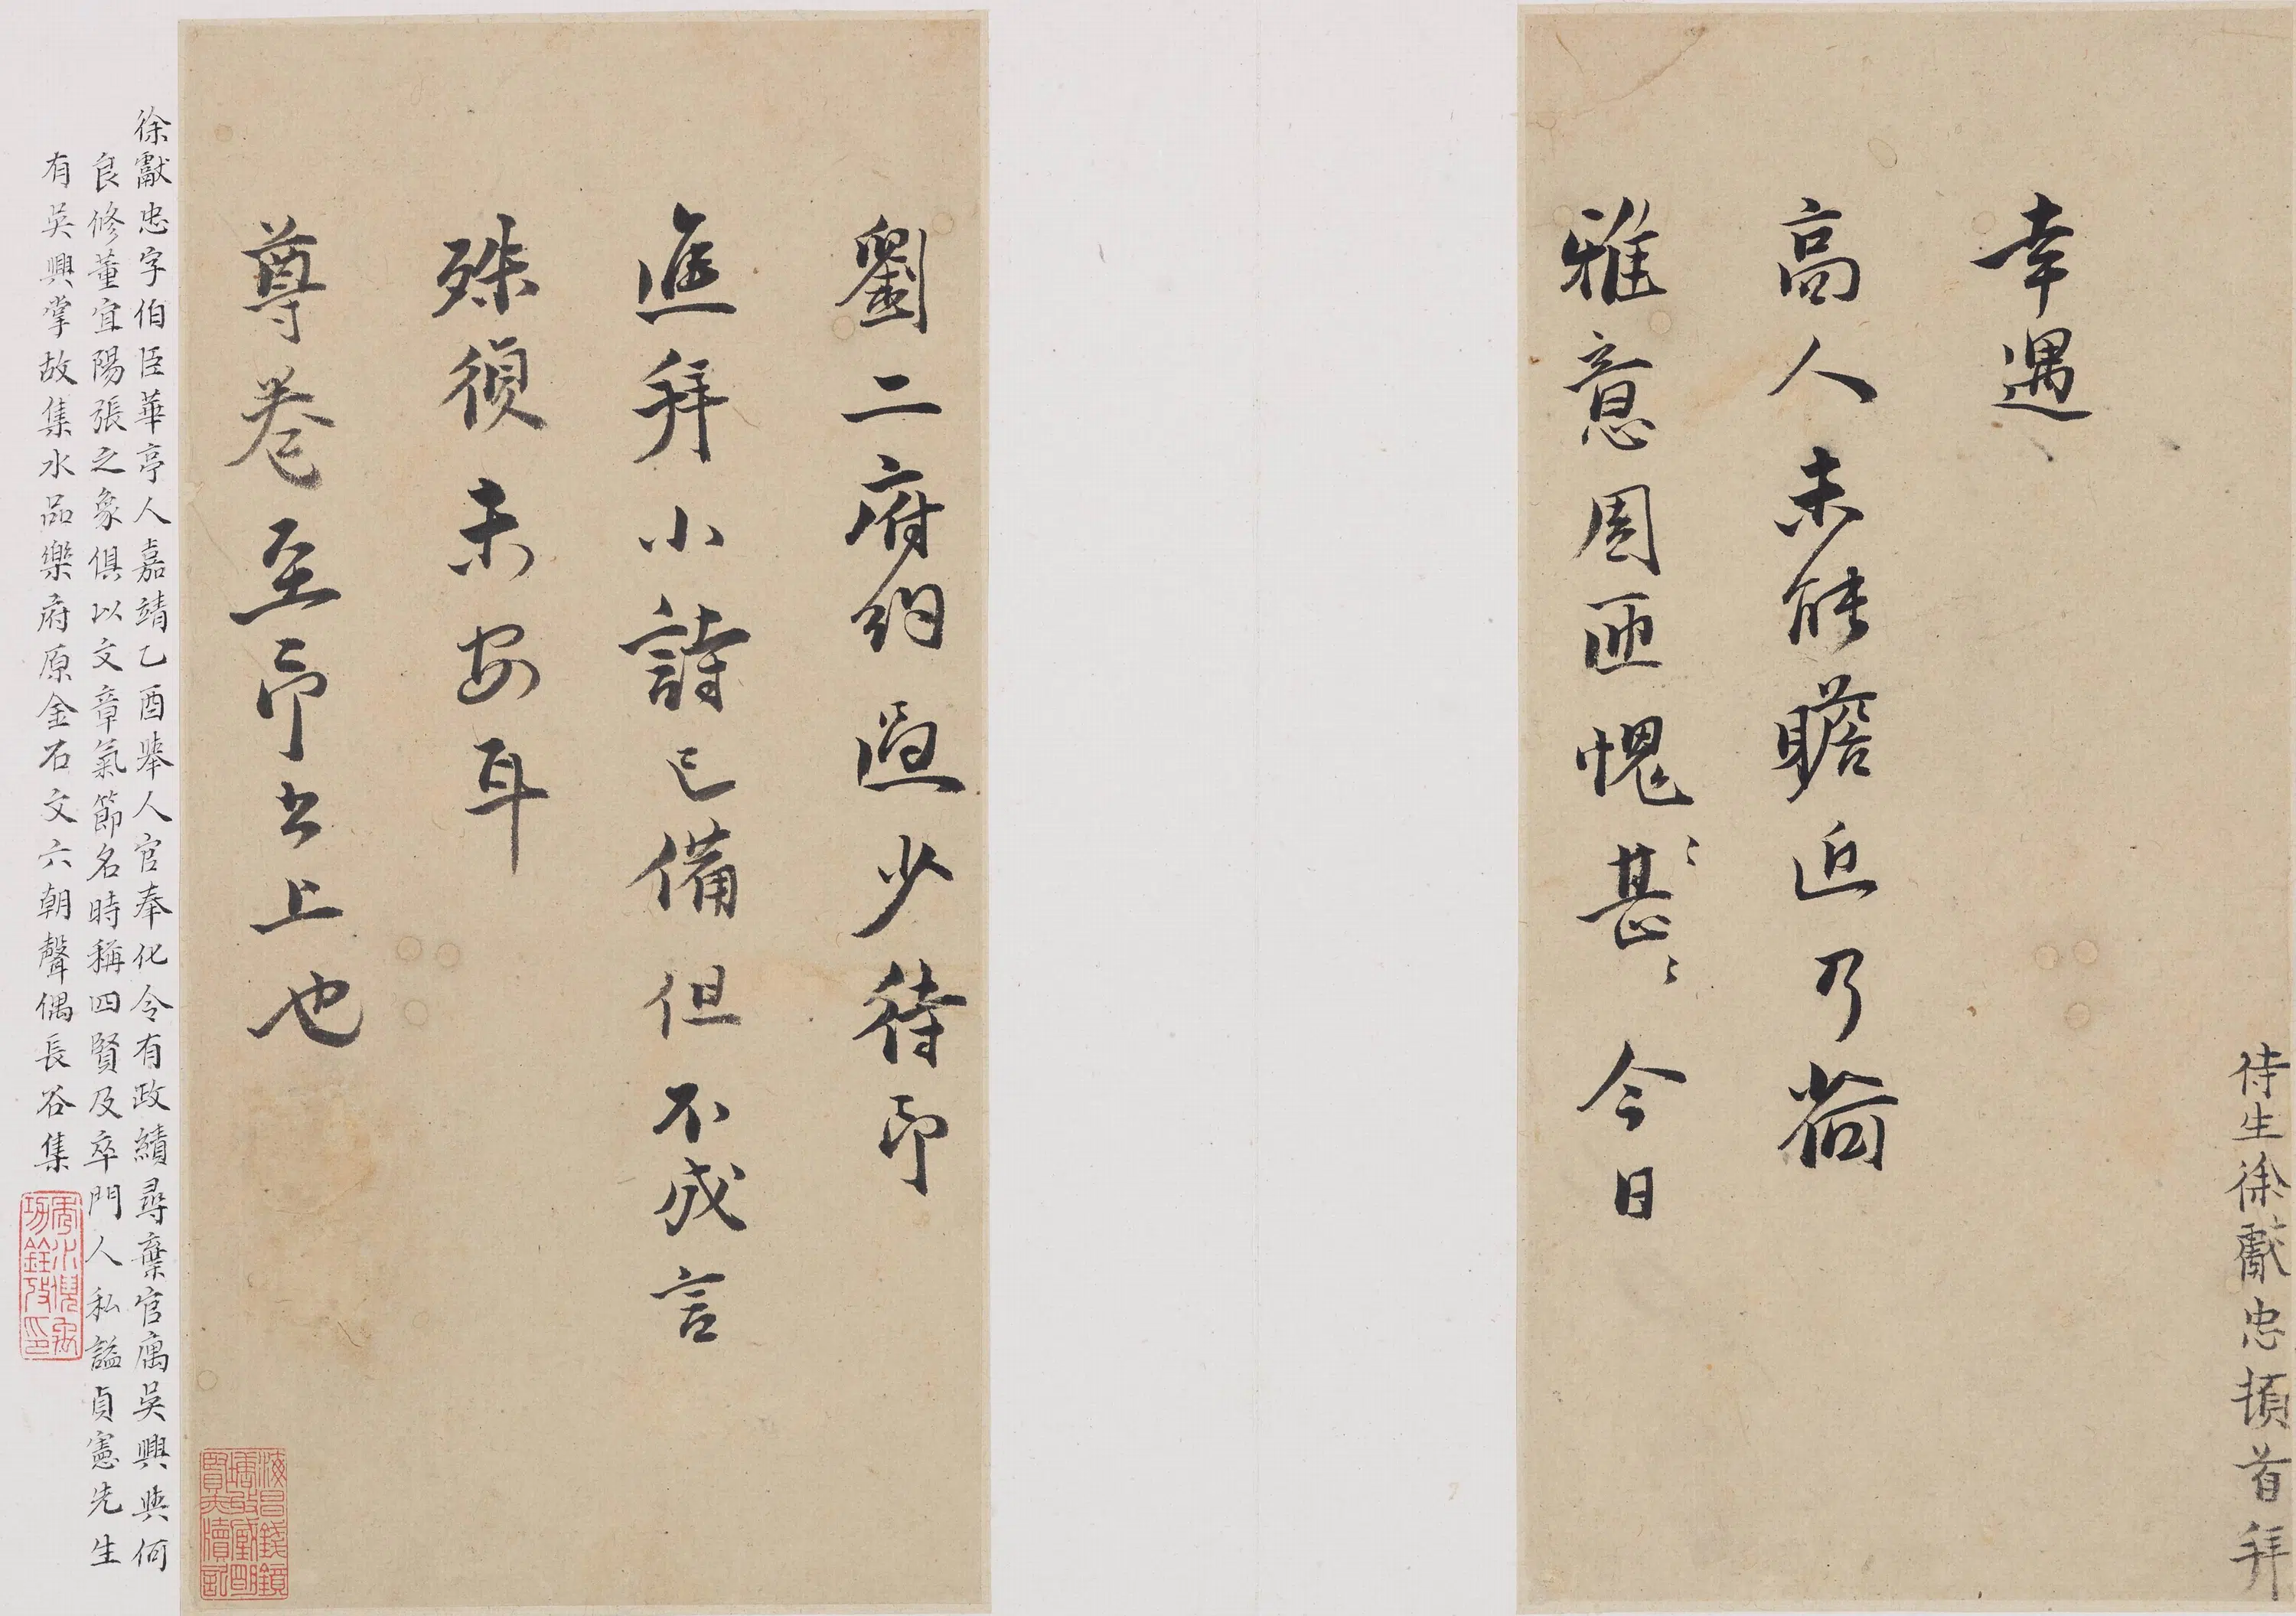 侍生徐獻忠頓首拜
幸遇
高人未能瞻近乃荷
雅意周匝愧〻甚〻今日
劉二府約過少待即
進拜小詩已備但不成言
殊須未安耳
尊卷至即書上也
徐獻忠字伯臣華亭人嘉靖乙酉舉人官奉化令有政績尋棄官寓吳興與何
良修董宜陽張之象俱以文章氣節名時稱四賢及卒門人私謚貞憲先生
有吳興掌故集水品樂府原金石文六朝聲偶長谷集
海昌錢鏡塘